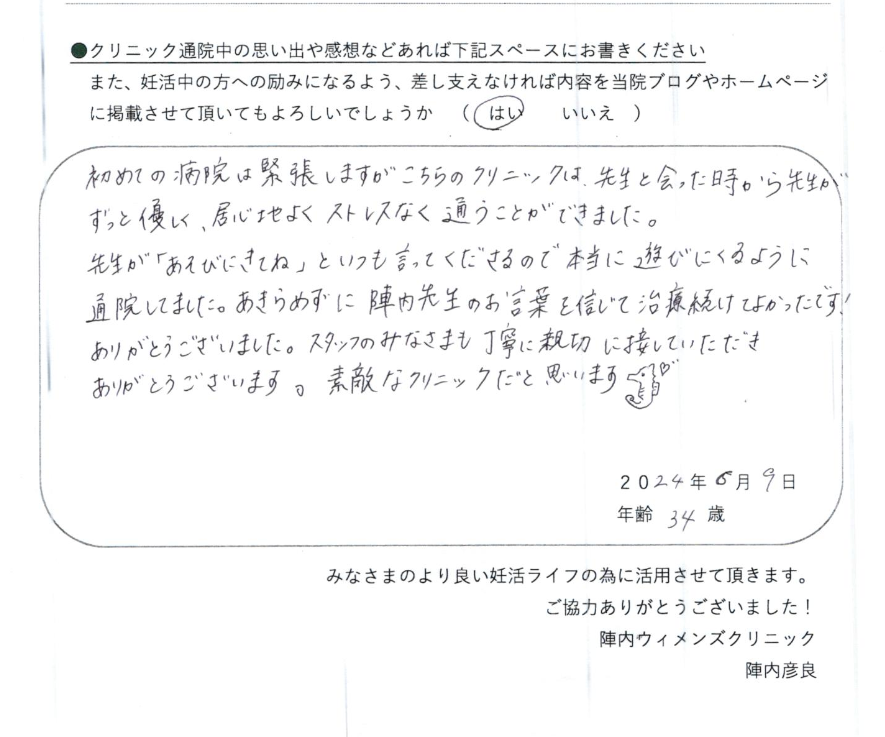 ●クリニック通院中の思い出や感想などあれば下記スペースにお書きください
また、妊活中の方への励みになるよう、差し支えなければ内容を当院ブログやホームページ
に掲載させて頂いてもよろしいでしょうか （ はい　いいえ ）
初めての病院は緊張しますがこちらのクリニックは、先生と会った時から先生が
ずっと優しく、居心地よくストレスなく通うことができました。
先生が「あそびにきてね」といつも言ってくださるので本当に遊びにくるように
通院してました。あきらめずに陣内先生のお言葉を信じて治療続けてよかったです!
ありがとうございました。スタッフのみなさまも丁寧に親切に接していただき
ありがとうございます。素敵なクリニックだと思います
2024年6月9日
年齢 34 歳
みなさまのより良い妊活ライフの為に活用させて頂きます。
ご協力ありがとうございました！
陣内ウィメンズクリニック
陣内彦良